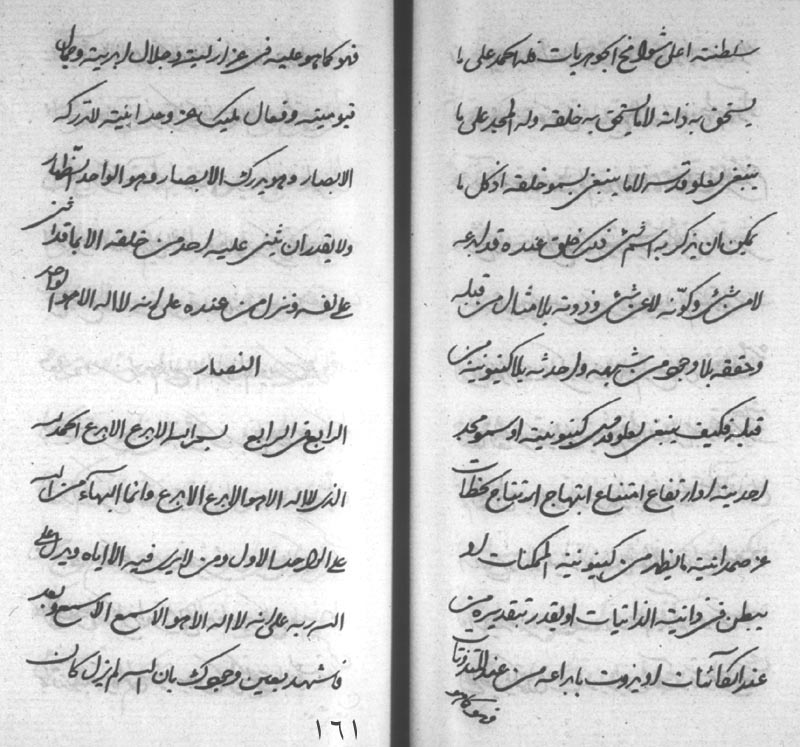 سلطنته اعلی شوامخ الجوهریات فله الحمد علی ما
یستحق به ذاته لا ما یستحق به خلقه وله المجد علی ما
ینبغی لعلو قدسه لا ما ینبغی لسمو خلقه اذ کل ما
یمکن بان یذکر به اسم شیء فذلک خلق عنده قد ابدعه
لا من شیء وکوّنه لا عن شیء وذوته بلا مثال من قبله
وحققه بلا وجود من شبهه واحدثه بلا کینونیة من
قبله فکیف ینبغی لعلو قدس کینونیته او سمو مجد
احدیته او ارتفاع امتناع ابتهاج لحظات
عز صمدانیته ما یظهر من کینونیة الممکنات او
یبطن فی ذاتیة الذاتیات او یقدر بتقدیره من
عند الکائنات او یذوت بابداعه من عند المذوتات
فهو کما هو
فهو کما هو علیه فی عز ازلیته وجلال ابدیته وجمال
قیومیته وفعال ملیک عز وحدانیته لا تدرکه
الابصار وهو یدرک الابصار وهو الواحد النظار
ولا یقدر ان یثنی علیه احد من خلقه الا بما قد اثنی
علی نفسه ونزل من عنده علی انه لا اله الا هو الواحد
النصار
الرابع فی الرابع بسم الله الابدع الابدع الحمد لله
الذی لا اله الا هو الابدع الابدع وانما البهاء من الله
علی الواحد الاول ومن لا یری فیه الا ایاه ویدل علی
الله ربه علی انه لا اله الا هو الاسمع الاسمع وبعد
فاشهد بعین وجودک بان الله لم یزل کان
١٦١